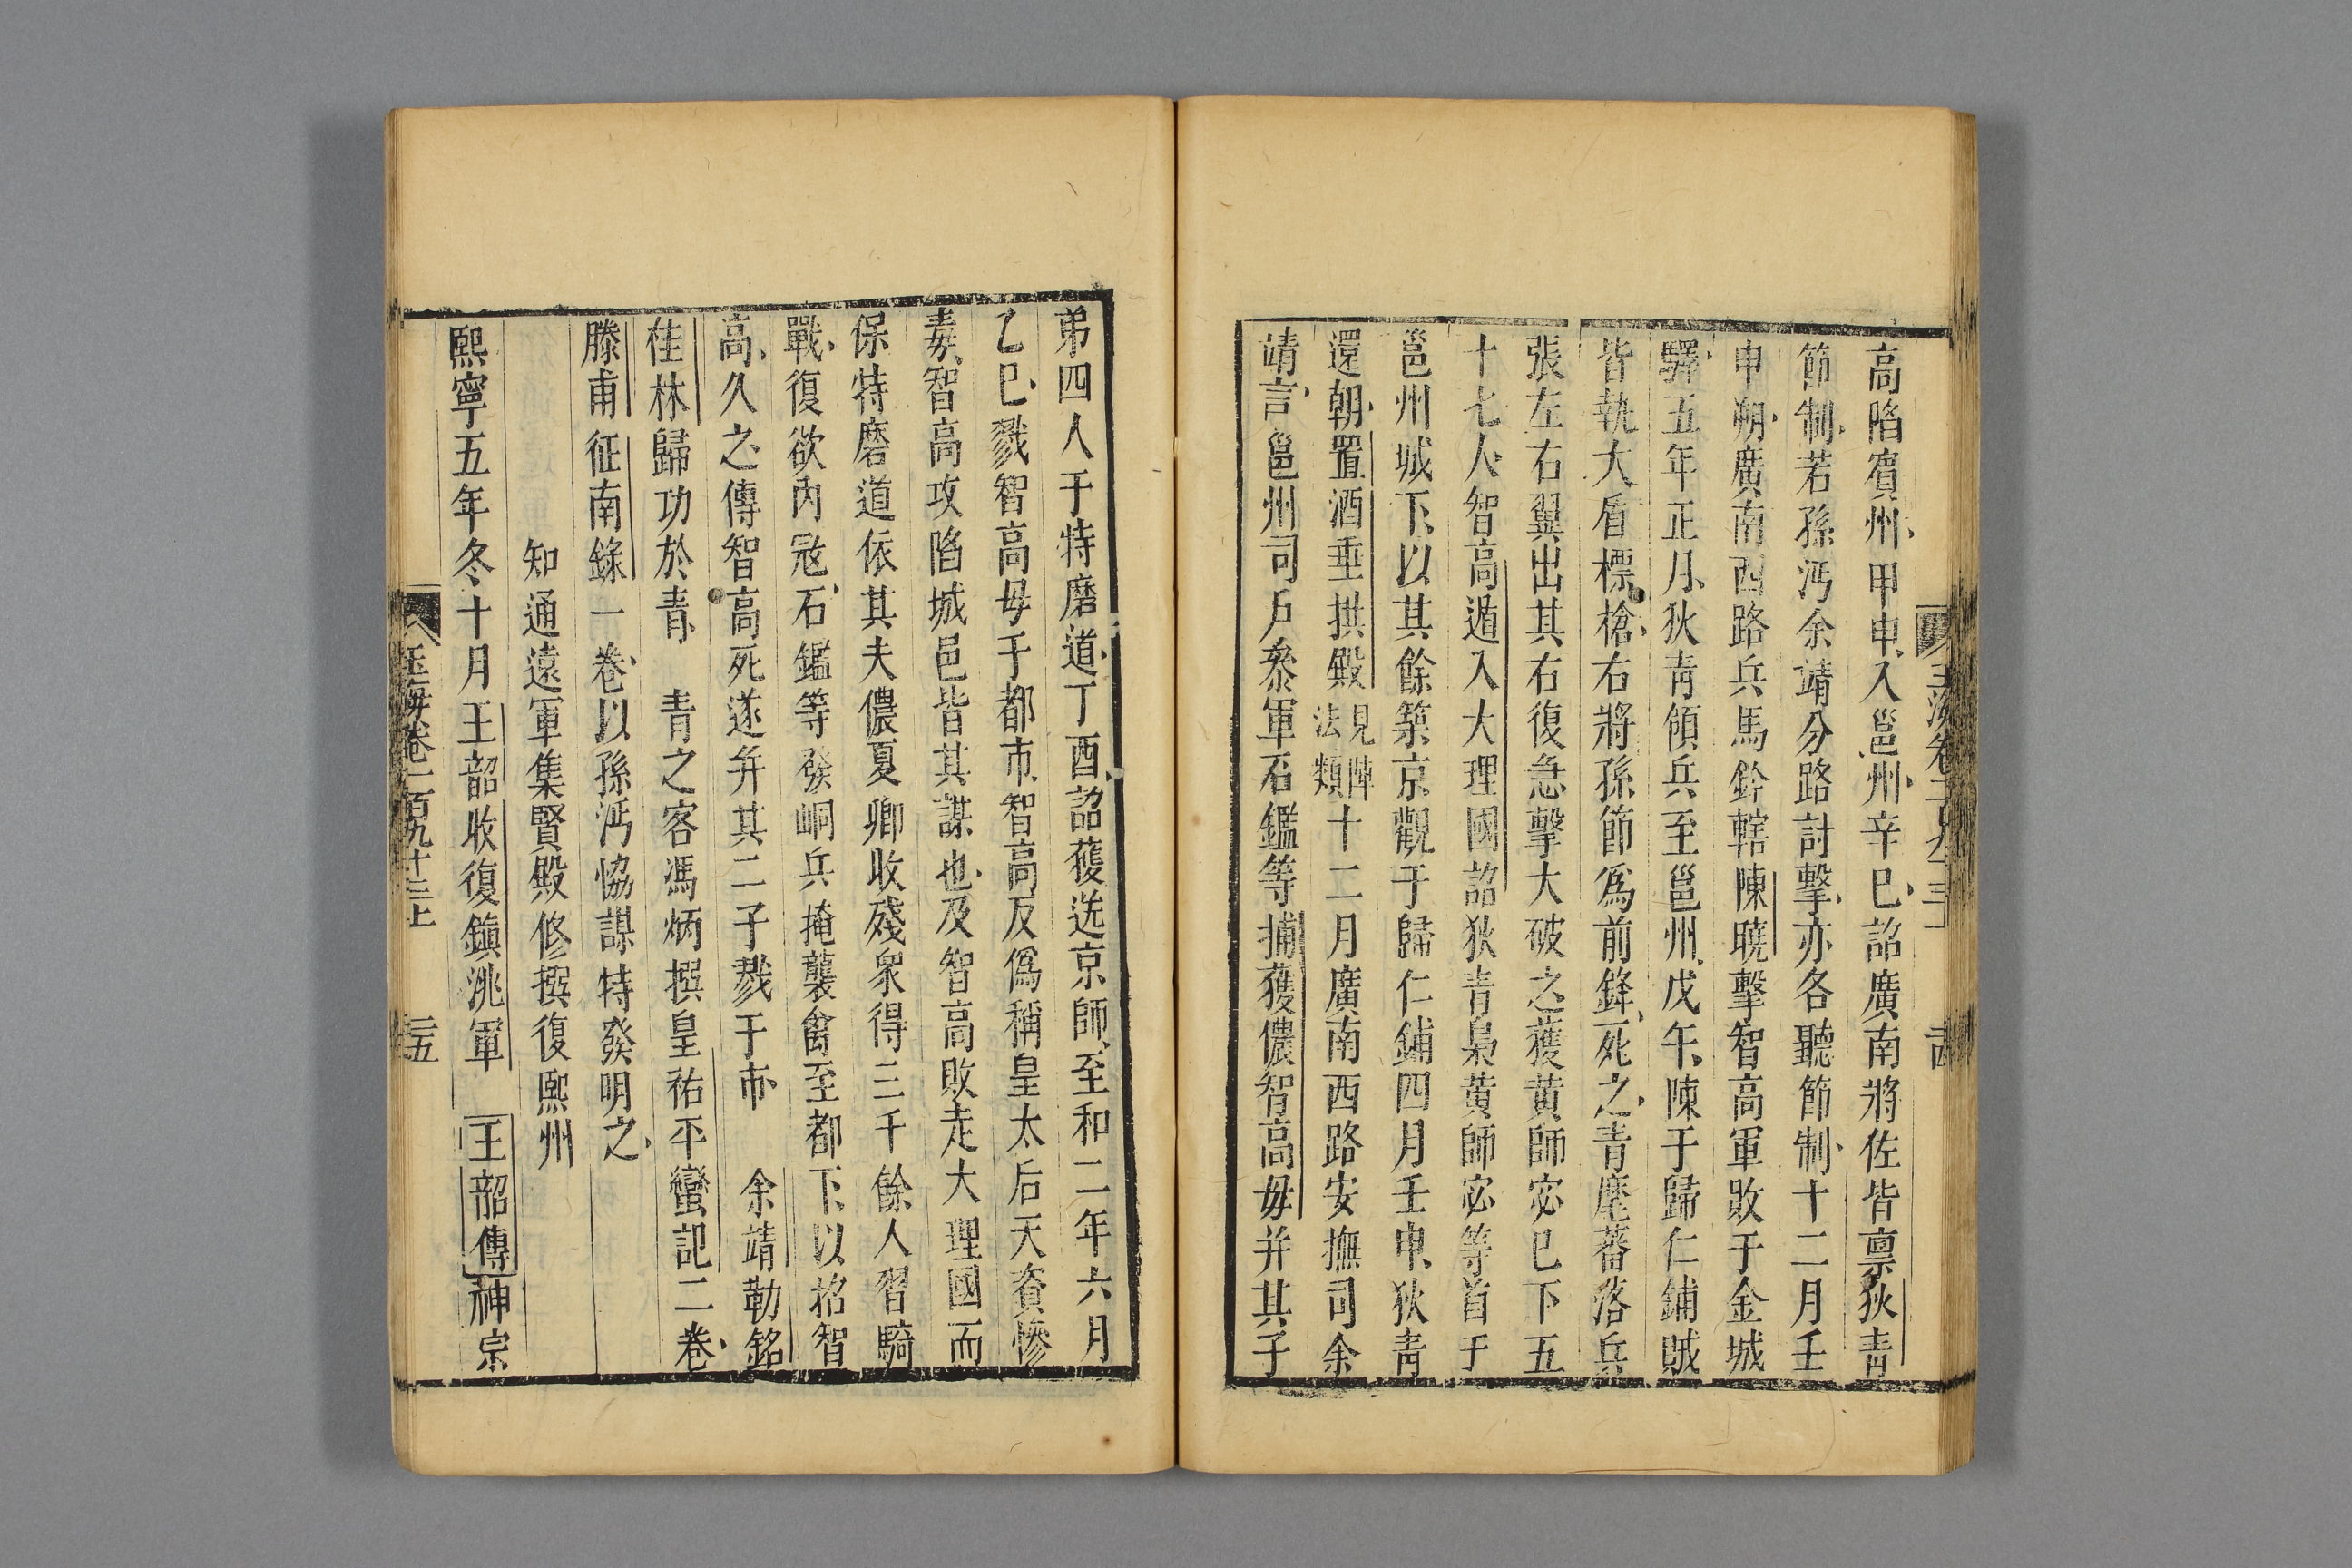 高陷賔州甲申入邕州辛巳詔廣南將佐皆禀狄青
節制若孫沔余靖分路討擊亦各聽節制十二月壬
申朔廣南西路兵馬鈐轄陳曉擊智高軍敗于金城
驛五年正月狄青領兵至邕州戊午陳于歸仁鋪賊
皆執大盾標槍右將孫節爲前鋒死之青麾蕃落兵
張左右翼出其右復急擊大破之獲黄師宓巳下五
十七人智高遁入大理國詔狄青梟黄師宓等首于
邕州城下以其餘築京觀于歸仁鋪四月壬申狄青
還朝置酒垂拱殿見陣法類十二月廣南西路安撫司余
靖言邕州司戶叅軍石鑑等捕獲儂智高毋并其子
弟四人于特磨道丁酉詔護送京師至和二年六月
乙巳戮智高毋于都市智高反僞稱皇太后天資慘
毒智高攻陷城邑皆其謀也及智高敗走大理國而
保特磨道依其夫儂夏卿收殘衆得三千餘人習騎
戰復欲內冦石鑑等發峒兵掩襲禽至都下以招智
高久之傳智高死遂并其二子戮于市　余靖勒銘
桂林歸功於青　青之客馮炳撰皇祐平蠻記二卷
滕甫征南錄一卷以孫沔恊謀特發明之
知通遠軍集賢殿修撰復熙州
熙寧五年冬十月王韶收復鎭洮軍　王韶傳神宗
玉海卷一百九十三上　二五